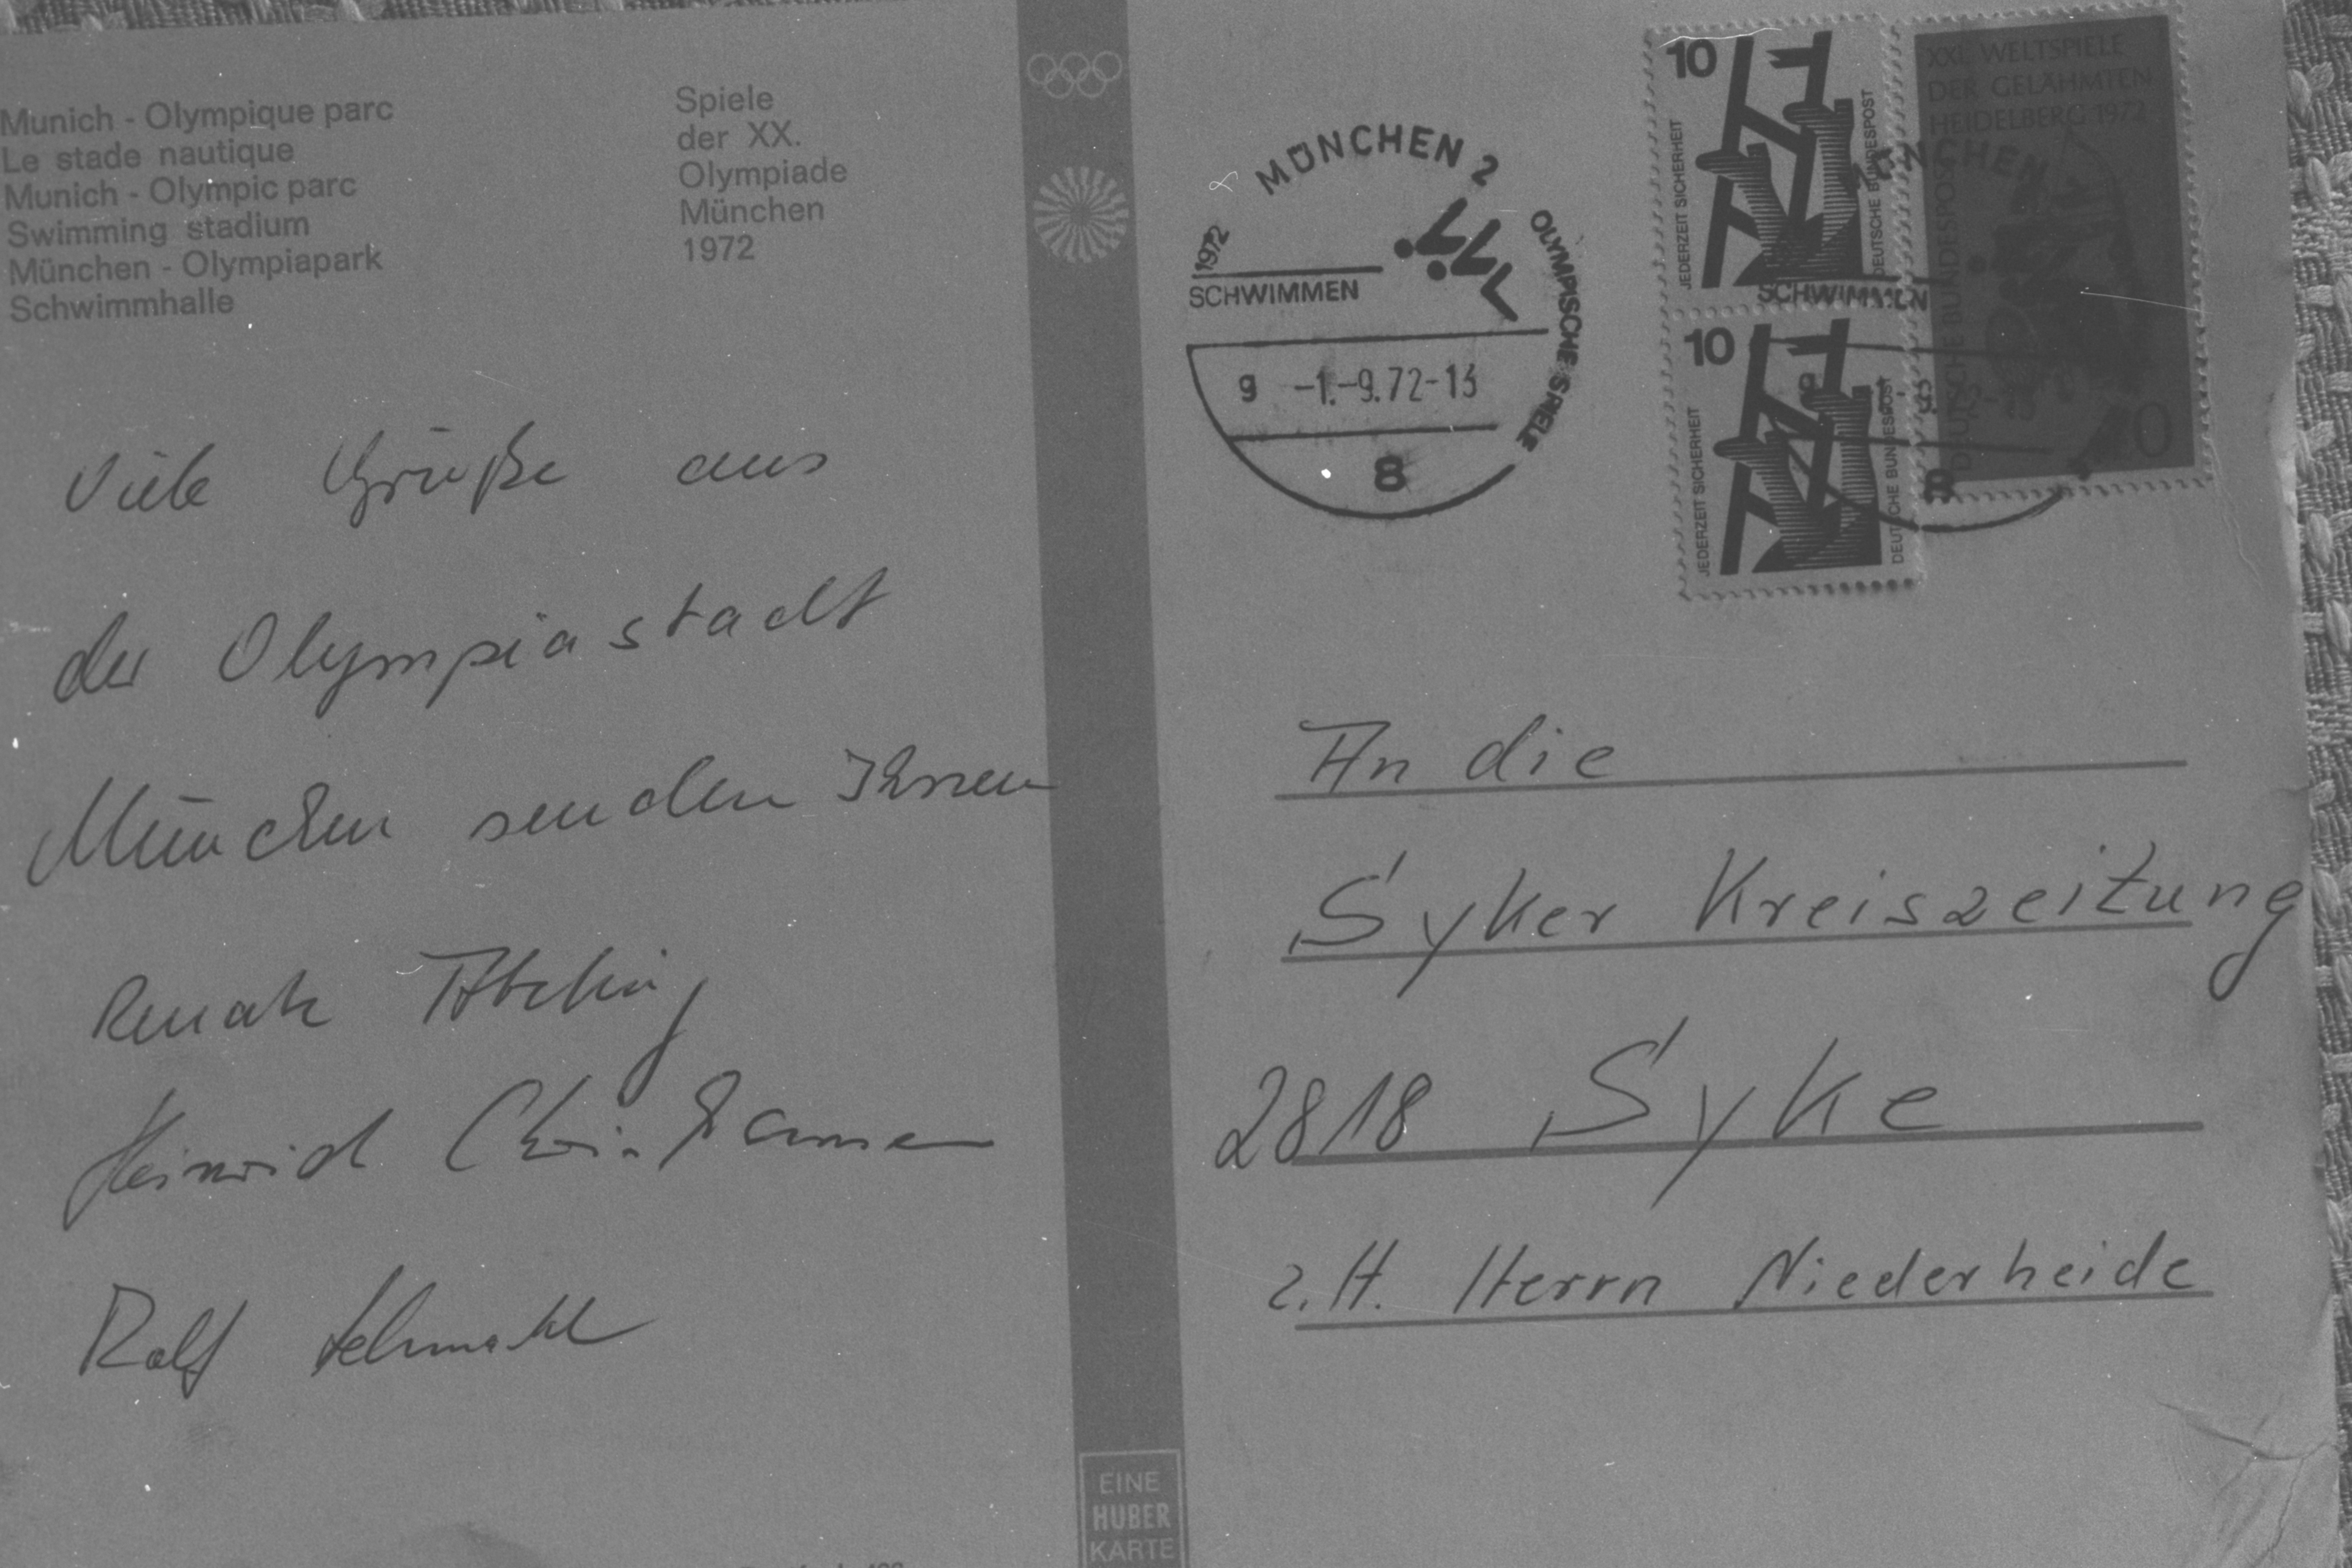 Munich - Olympique parc
Le stade nautique
Munich - Olympic parc
Swimming stadium
München - Olympiapark
Schwimmhalle
Spiele
der XX.
Olympiade
München
1972
Viele Grüße aus
der Olympiastadt
München senden Ihnen
Renate
Heinrich
Rolf
EINE
HUBER
KARTE
MÜNCHEN 2
1972
OLYMPISCHE SPIELE
SCHWIMMEN
g -1.-9.72-13
8
10
JEDERZEIT SICHERHEIT
DEUTSCHE BUNDESPOST
10
JEDERZEIT SICHERHEIT
DEUTSCHE BUNDESPOST
XXI. WELTSPIELE
DER GELÄHMTEN
HEIDELBERG 1972
DEUTSCHE BUNDESPOST
MÜNCHEN
SCHWIMMEN
8
An die
Syker Kreiszeitung
2818 Syke
z.H. Herrn Niederheide